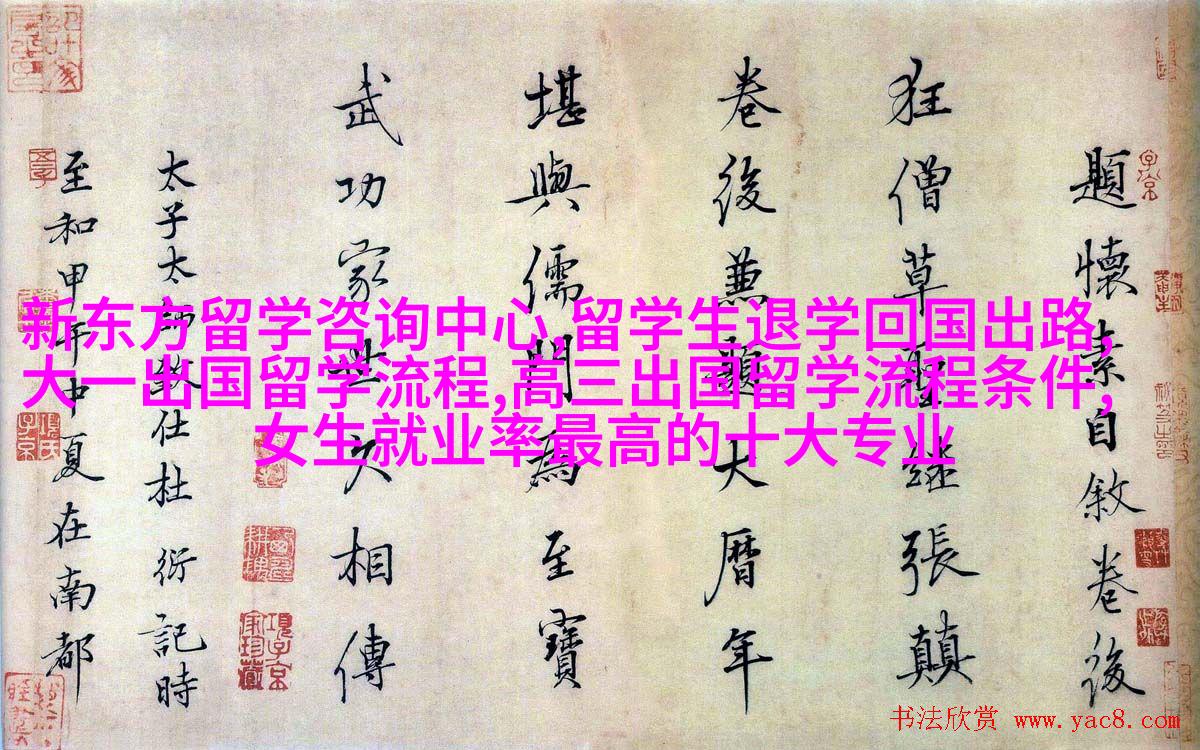 題懷素自敘卷後
狂僧草聖継張顛
卷後兼題大曆年
堪與儒門為至寶
武功家世久相傳
太子太師致仕杜衍記時
至和甲午中夏在南都
新东方留学咨询中心,留学生退学回国出路,
大一出国留学流程,高三出国留学流程条件,
女生就业率最高的十大专业
书法欣赏 www.yac8.com